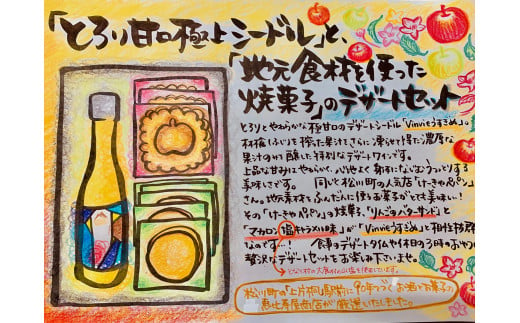 「とろり甘口極上シードル」と、
「地元食材を使った
焼菓子」のデザートセット
とろりとやわらかな極甘口のデザートシードル「Vinvieうすきめ」。
林檎(ふじ)を搾った果汁をさらに凍らせて得た濃厚な
果汁のみで醸した特別なデザートワインです。
上品な甘みにやわらかく、心地よく
美味しさです。 同じく松川町の人気店「けーきやペパン」
さん。地元素材をふんだんに使うお菓子がとても美味しい!
その「けーきやペパン」の焼菓子、「りんごのバターサンド」と
「マカロン塩キャラメル味」が「Vinvieうすきめ」と相性抜群
なのです…! 食事のデザートタイムや休日の3時のおやつに
贅沢なデザートセットをお楽しみ下さいませ。
松川町の「上片桐駅前に90年つづくお酒とお菓子の
恵比寿屋商店が厳選いたしました。